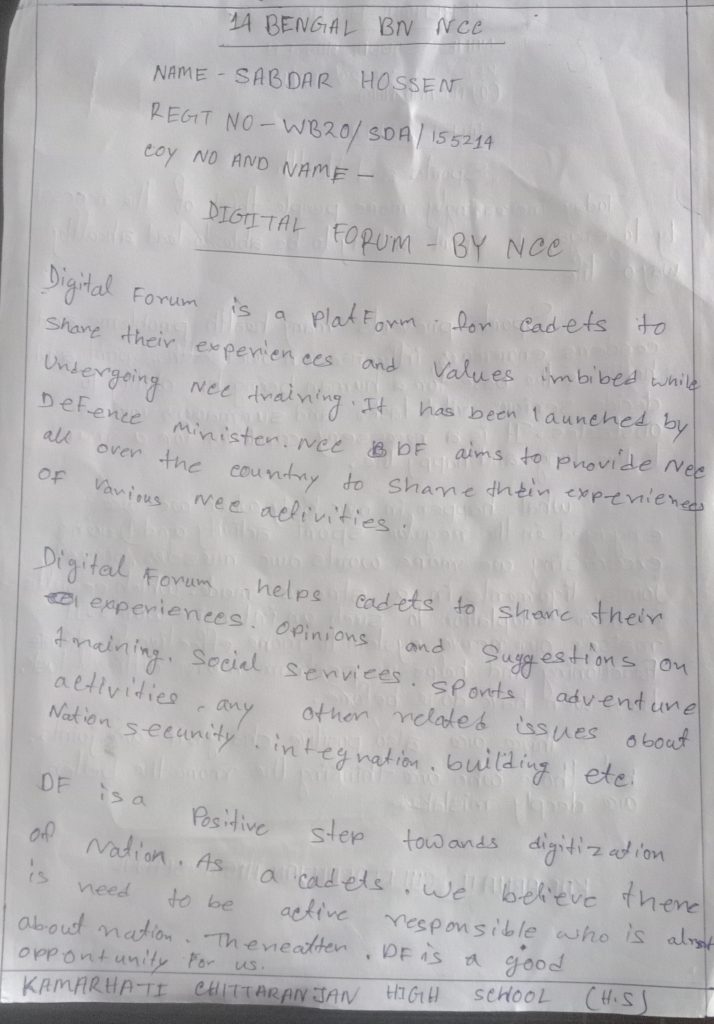 14 BENGAL BN NCC
NAME - SABDAR HOSSEN
REGT NO - WB20/SDA/155214
COY NO AND NAME -
DIGITAL FORUM - BY NCC
Digital Forum is a platForm for cadets to
share their experiences and values imbibed while
Undergoing NCC training. It has been launched by
DeFence Minister. NCC DF aims to provide NCC
all over the country to share their experiences
OF Various NCC activities.
Digital Forum helps cadets to share their
experiences. Opinions and Suggestions on
training. Social Services. Sports adventure
activities, any other related issues about
Nation security. integration. building etc.
DF is a Positive step towards digitization
of Nation. As a cadets. we believe there
is need to be active responsible who is alrert
about nation. Thereafter. DF is a good
opportunity For us.
KAMARHATI CHITTARANJAN HIGH SCHOOL (H.S)